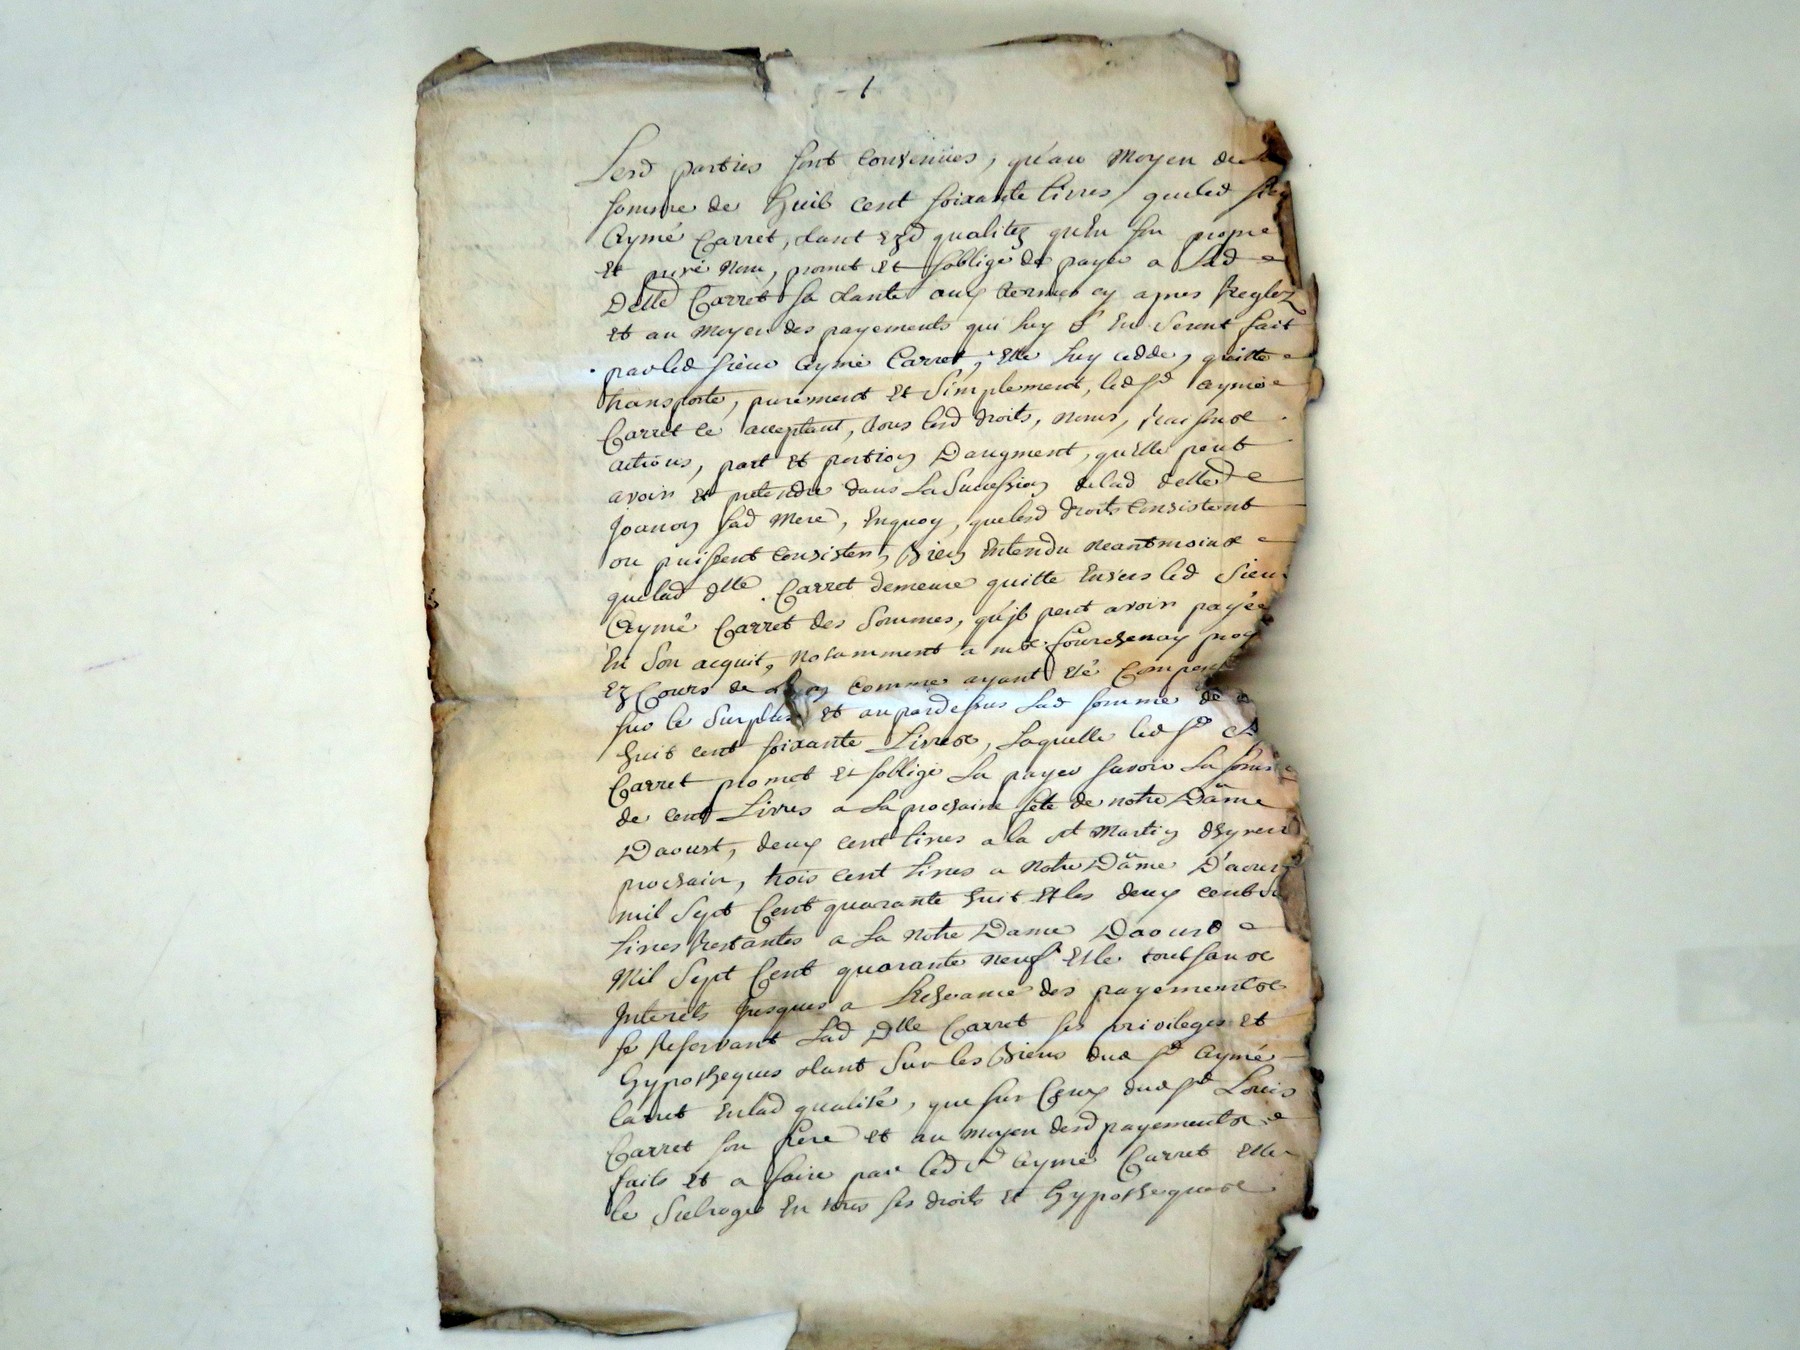 Lesd parties sont convenües, qu'au moyen de la
somme de huit cent soixante livres, queled sieur
Aymé Carret, tant ezd qualitez qu'en son propre
et privé nom, promet et soblige de payer a lad
Delle Carret sa tante aux termes cy apres reglez
et au moyen des payements qui luy en seront fait
parled sieur Aymé Carret, elle luy cedde, quitte
transporte, purement et simplement, led sr Aymé
Carret ce acceptant, tous lesd droits, noms, raisons
actions, part et portion daugment, qu'elle peut
avoir et pretendre dans la succession delad delle
Joanon sad mere, enquoy, quelesd droits consistent
ou puissent consister, bien entendu neantmoins
quelad dlle Carret demeure quitte envers led sieur
Aymé Carret des sommes, qu'il peut avoir payée
en son acquit, notamment a me fourchenay
ez cours de comme ayant eté
sur le surplus et audardessus lad somme de
huit cent soixante livres, laquelle led sr
Carret promet et soblige la payer savoir la somme
de cent livres a la prochaine fête de notre Dâme
Daoust, deux cent livres a la st Martin dhyver
prochain, trois cent livres a notre Dâme D'aoust
mil sept cent quarante huit et les deux cent
livres restantes a la notre Dame Daoust
Mil sept cent quarante neuf et le tout sans
interets jusques a lecheance des payements
se reservant lad Dlle Carret ses privileges et
hypotheques tant sur les biens dud sr Aymé
Carret enlad qualité, que sur ceux dud sr Louis
Carret son frere et au moyen desd payements
faits et a faire par led sr Aymé Carret elle
le subroge en tous ses droits et hypotheques